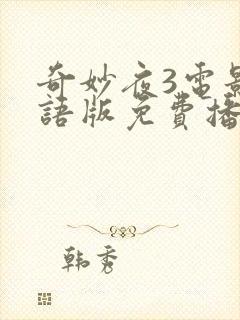 奇妙夜3電影
語版免費播
韩秀